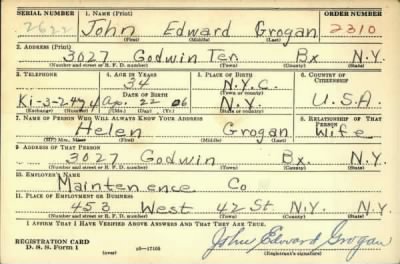 SERIAL NUMBER 1. NAME (Print) ORDER NUMBER
2622 John Edward Grogan 2310
(First) (Middle) (Last)
2. ADDRESS (Print)
3027 Godwin Ter. Bx N.Y.
(Number and street or R. F. D. number) (Town) (County) (State)
3. TELEPHONE 4. AGE IN YEARS 5. PLACE OF BIRTH 6. COUNTRY OF CITIZENSHIP
34 N.Y.C.
DATE OF BIRTH (Town or county)
Ki-3-2474 Ap. 22 06 N.Y. U.S.A.
(Exchange) (Number) (Mo.) (Day) (Yr.) (State or country)
7. NAME OF PERSON WHO WILL ALWAYS KNOW YOUR ADDRESS 8. RELATIONSHIP OF THAT PERSON
Helen Grogan Wife
(First) (Middle) (Last)
9. ADDRESS OF THAT PERSON
3027 Godwin Bx. N.Y.
(Number and street or R. F. D. number) (Town) (County) (State)
10. EMPLOYER'S NAME
Maintenence Co
11. PLACE OF EMPLOYMENT OR BUSINESS
453 West 42 St. N.Y. N.Y
(Number and street or R. F. D. number) (Town) (County) (State)
I AFFIRM THAT I HAVE VERIFIED ABOVE ANSWERS AND THAT THEY ARE TRUE.
REGISTRATION CARD
D. S. S. Form 1 (over) 16-17105 John Edward Grogan
(Registrant's signature)